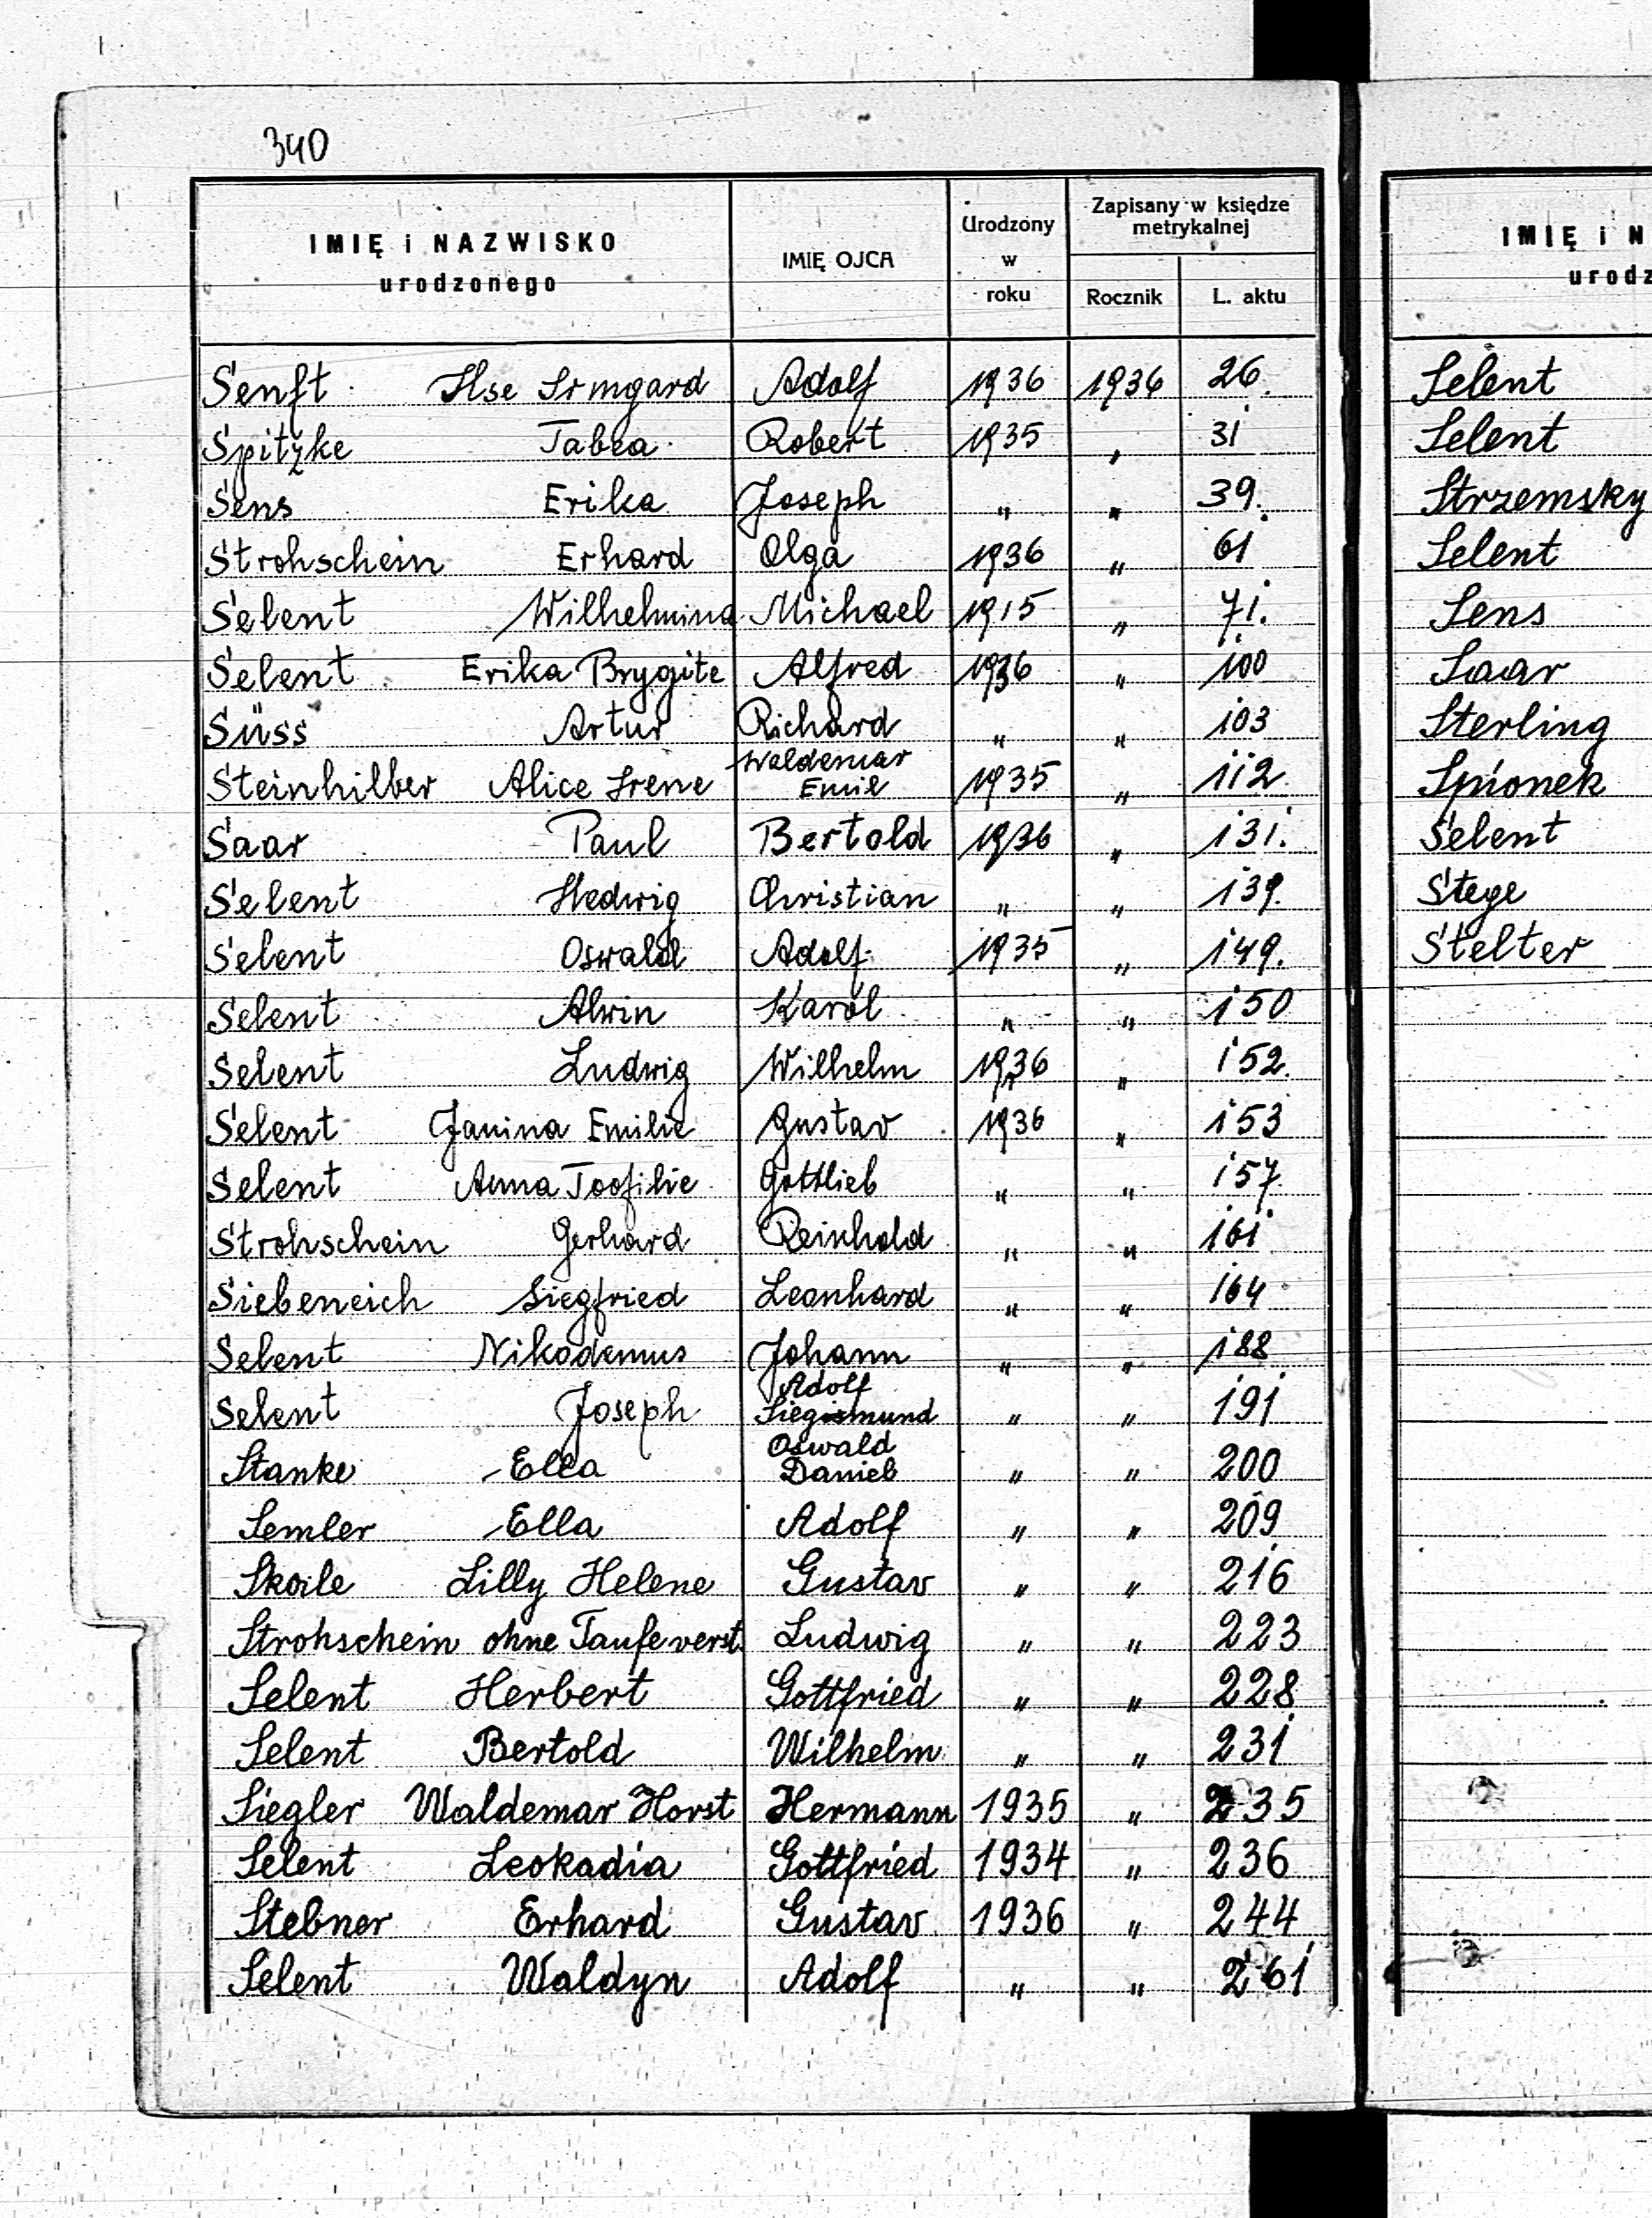 340
IMIĘ i NAZWISKO urodzonego | IMIĘ OJCA | Urodzony w roku | Zapisany w księdze metrykalnej | Rocznik | L. aktu
Senft Ilse Irmgard Adolf 1936 1936 26.
Spitzke Tabea Robert 1935 " 31
Sens Erika Joseph " " 39.
Strohschein Erhard Olga 1936 " 61
Selent Wilhelmina Michael 1915 " 71.
Selent Erika Brygite Alfred 1936 " 100
Süss Artur Richard " " 103
Steinhilber Alice Irene Waldemar Emil 1935 " 112.
Saar Paul Bertold 1936 " 131.
Selent Hedwig Christian " " 139.
Selent Oswald Adolf 1935 " 149.
Selent Alwin Karol " " 150
Selent Ludwig Wilhelm 1936 " 152.
Selent Janina Emilie Gustav 1936 " 153
Selent Anna Toofilie Gottlieb " " 157
Strohschein Gerhard Reinhold " " 161
Siebeneich Siegfried Leonhard " " 164
Selent Nikodemus Johann " " 188
Selent Joseph Adolf Siegismund " " 191
Stanke Ella Oswald Daniel " " 200
Semler Ella Adolf " " 209
Skoile Lilly Helene Gustav " " 216
Strohschein ohne Taufe verst. Ludwig " " 223
Selent Herbert Gottfried " " 228
Selent Bertold Wilhelm " " 231
Siegler Waldemar Horst Hermann 1935 " 235
Selent Leokadia Gottfried 1934 " 236
Stebner Erhard Gustav 1936 " 244
Selent Waldyn Adolf " " 261
IMIĘ i N
urodz
Selent
Selent
Strzemsky
Selent
Sens
Saar
Sterling
Spionek
Selent
Stege
Stelter